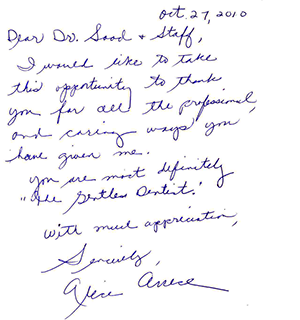 Oct. 27, 2010
Dear Dr. Sood & Staff,
I would like to take
this opportunity to thank
you for all the professional
and caring ways you
have given me.
you are most definitely
"The Gentless Dentist."
With much appreciation,
Sincerely,
Alice